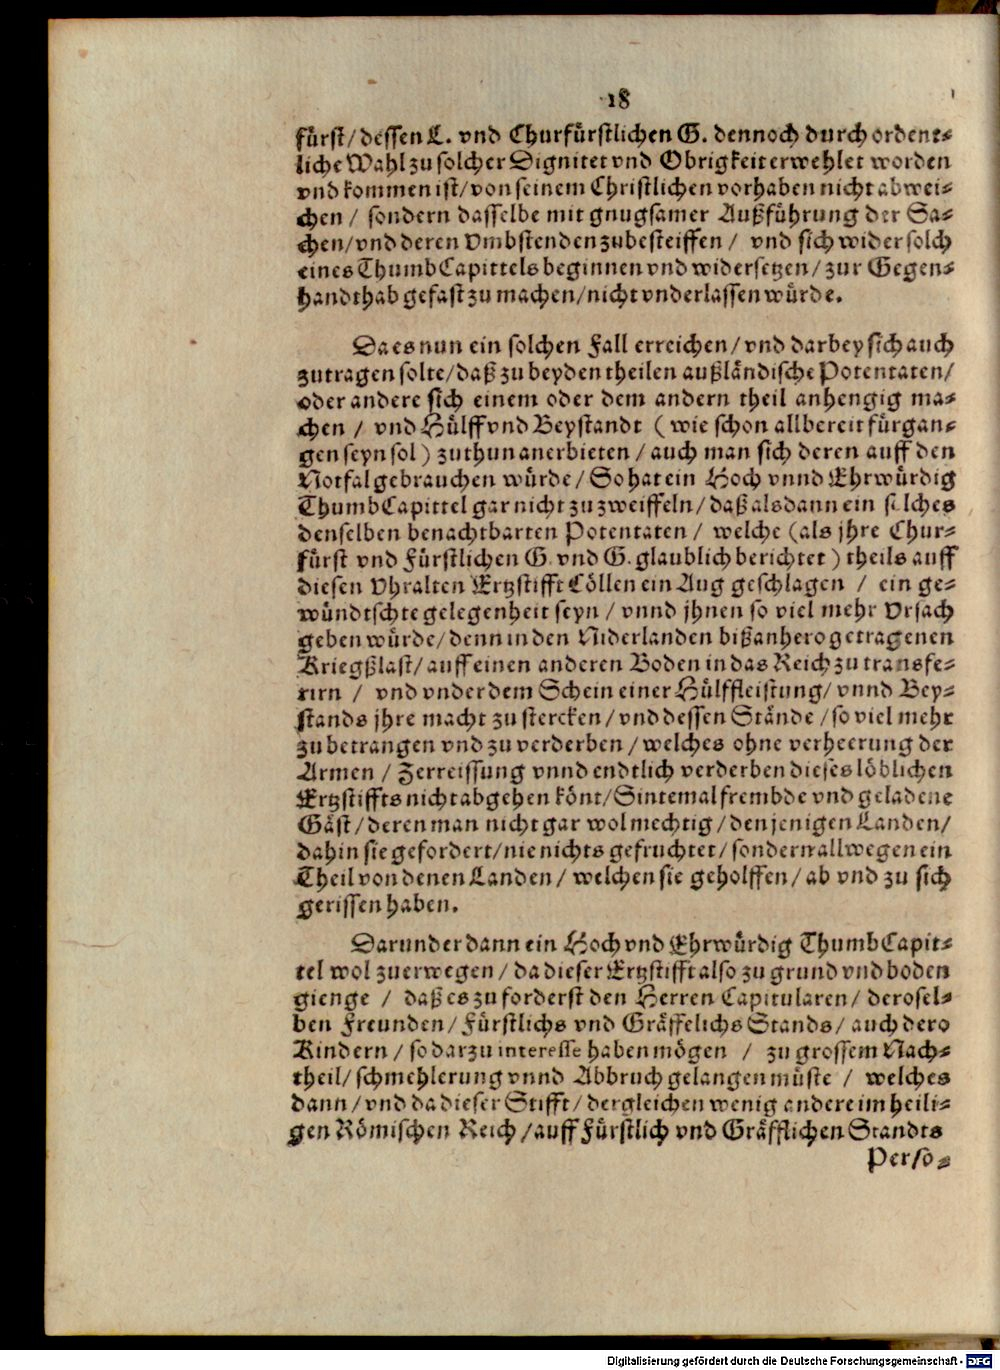 18
fürst/ dessen L. vnd Churfürstlichen G. dennoch durch ordent-
liche Wahl zu solcher Dignitet vnd Obrigkeit erwehlet worden
vnd kommen ist/ von seinem Christlichen vorhaben nicht abwei-
chen / sondern dasselbe mit gnugsamer Außführung der Sa-
chen/ vnd deren Vmbstenden zubesteiffen / vnd sich wider solch
eines ThumbCapittels beginnen vnd widersetzen/ zur Gegen-
handthab gefast zu machen/ nicht vnderlassen würde.
Da es nun ein solchen Fall erreichen/ vnd darbey sich auch
zutragen solte/ daß zu beyden theilen außländische Potentaten/
oder andere sich einem oder dem andern theil anhengig ma-
chen / vnd Hülff vnd Beystandt ( wie schon allbereit fürgan-
gen seyn sol ) zuthun anerbieten / auch man sich deren auff den
Notfal gebrauchen würde/ So hat ein Hoch vnnd Ehrwürdig
ThumbCapittel gar nicht zu zweiffeln/ daß alsdann ein solches
denselben benachtbarten Potentaten / welche (als jhre Chur-
fürst vnd Fürstlichen G. vnd G. glaublich berichtet ) theils auff
diesen Vhralten Ertzstifft Cöllen ein Aug geschlagen / ein ge-
wündtschte gelegenheit seyn / vnnd jhnen so viel mehr Vrsach
geben würde/ denn in den Niderlanden bißanhero getragenen
Kriegßlast/ auff einen anderen Boden in das Reich zu transfe-
rirn / vnd vnder dem Schein einer Hülffleistung/ vnnd Bey-
stands jhre macht zu stercken/ vnd dessen Stände / so viel mehr
zu betrangen vnd zu verderben / welches ohne verheerung der
Armen / Zerreissung vnnd endtlich verderben dieses löblichen
Ertzstiffts nicht abgehen könt/ Sintemal frembde vnd geladene
Gäst/ deren man nicht gar wol mechtig / den jenigen Landen/
dahin sie gefordert/ nie nichts gefruchtet/ sondern allwegen ein
Theil von denen Landen / welchen sie geholffen/ ab vnd zu sich
gerissen haben.
Darunder dann ein Hoch vnd Ehrwürdig ThumbCapit-
tel wol zuerwegen / da dieser Ertzstifft also zu grund vnd boden
gienge / daß es zuforderst den Herren Capitularen/ derosel-
ben Freunden/ Fürstlichs vnd Gräffelichs Stands/ auch dero
Kindern / so darzu interesse haben mögen / zu grossem Nach-
theil/ schmehlerung vnnd Abbruch gelangen müste / welches
dann/ vnd da dieser Stifft/ dergleichen wenig andere im heili-
gen Römischen Reich / auff Fürstlich vnd Gräfflichen Standts
Perso-
Digitalisierung gefördert durch die Deutsche Forschungsgemeinschaft - DFG